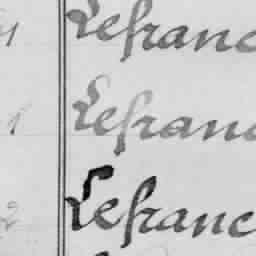 Lefranc
1 Lefranc
2 Lefranc